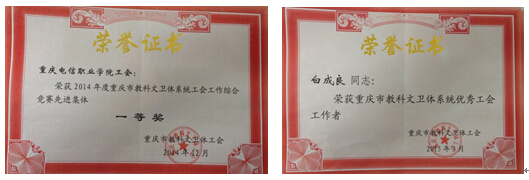 荣誉证书
重庆电信职业学院工会：
荣获2014年度重庆市教科文卫体系统工会工作综合
竞赛先进集体
一等奖
重庆市教科文卫体工会
2014年12月
荣誉证书
白成良 同志：
荣获重庆市教科文卫体系统优秀工会
工作者
重庆市教科文卫体工会